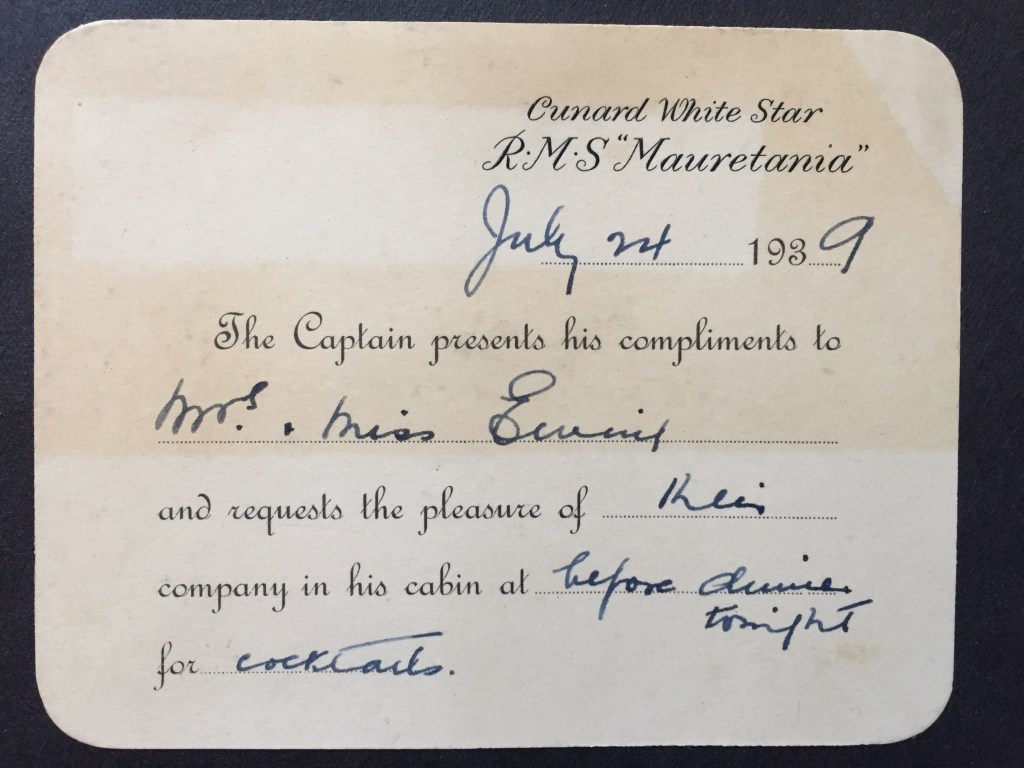 Cunard White Star
R·M·S "Mauretania"
July 24 1939
The Captain presents his compliments to
Mrs. . Miss Ewing
and requests the pleasure of their
company in his cabin at before dinner
tonight
for cocktails.